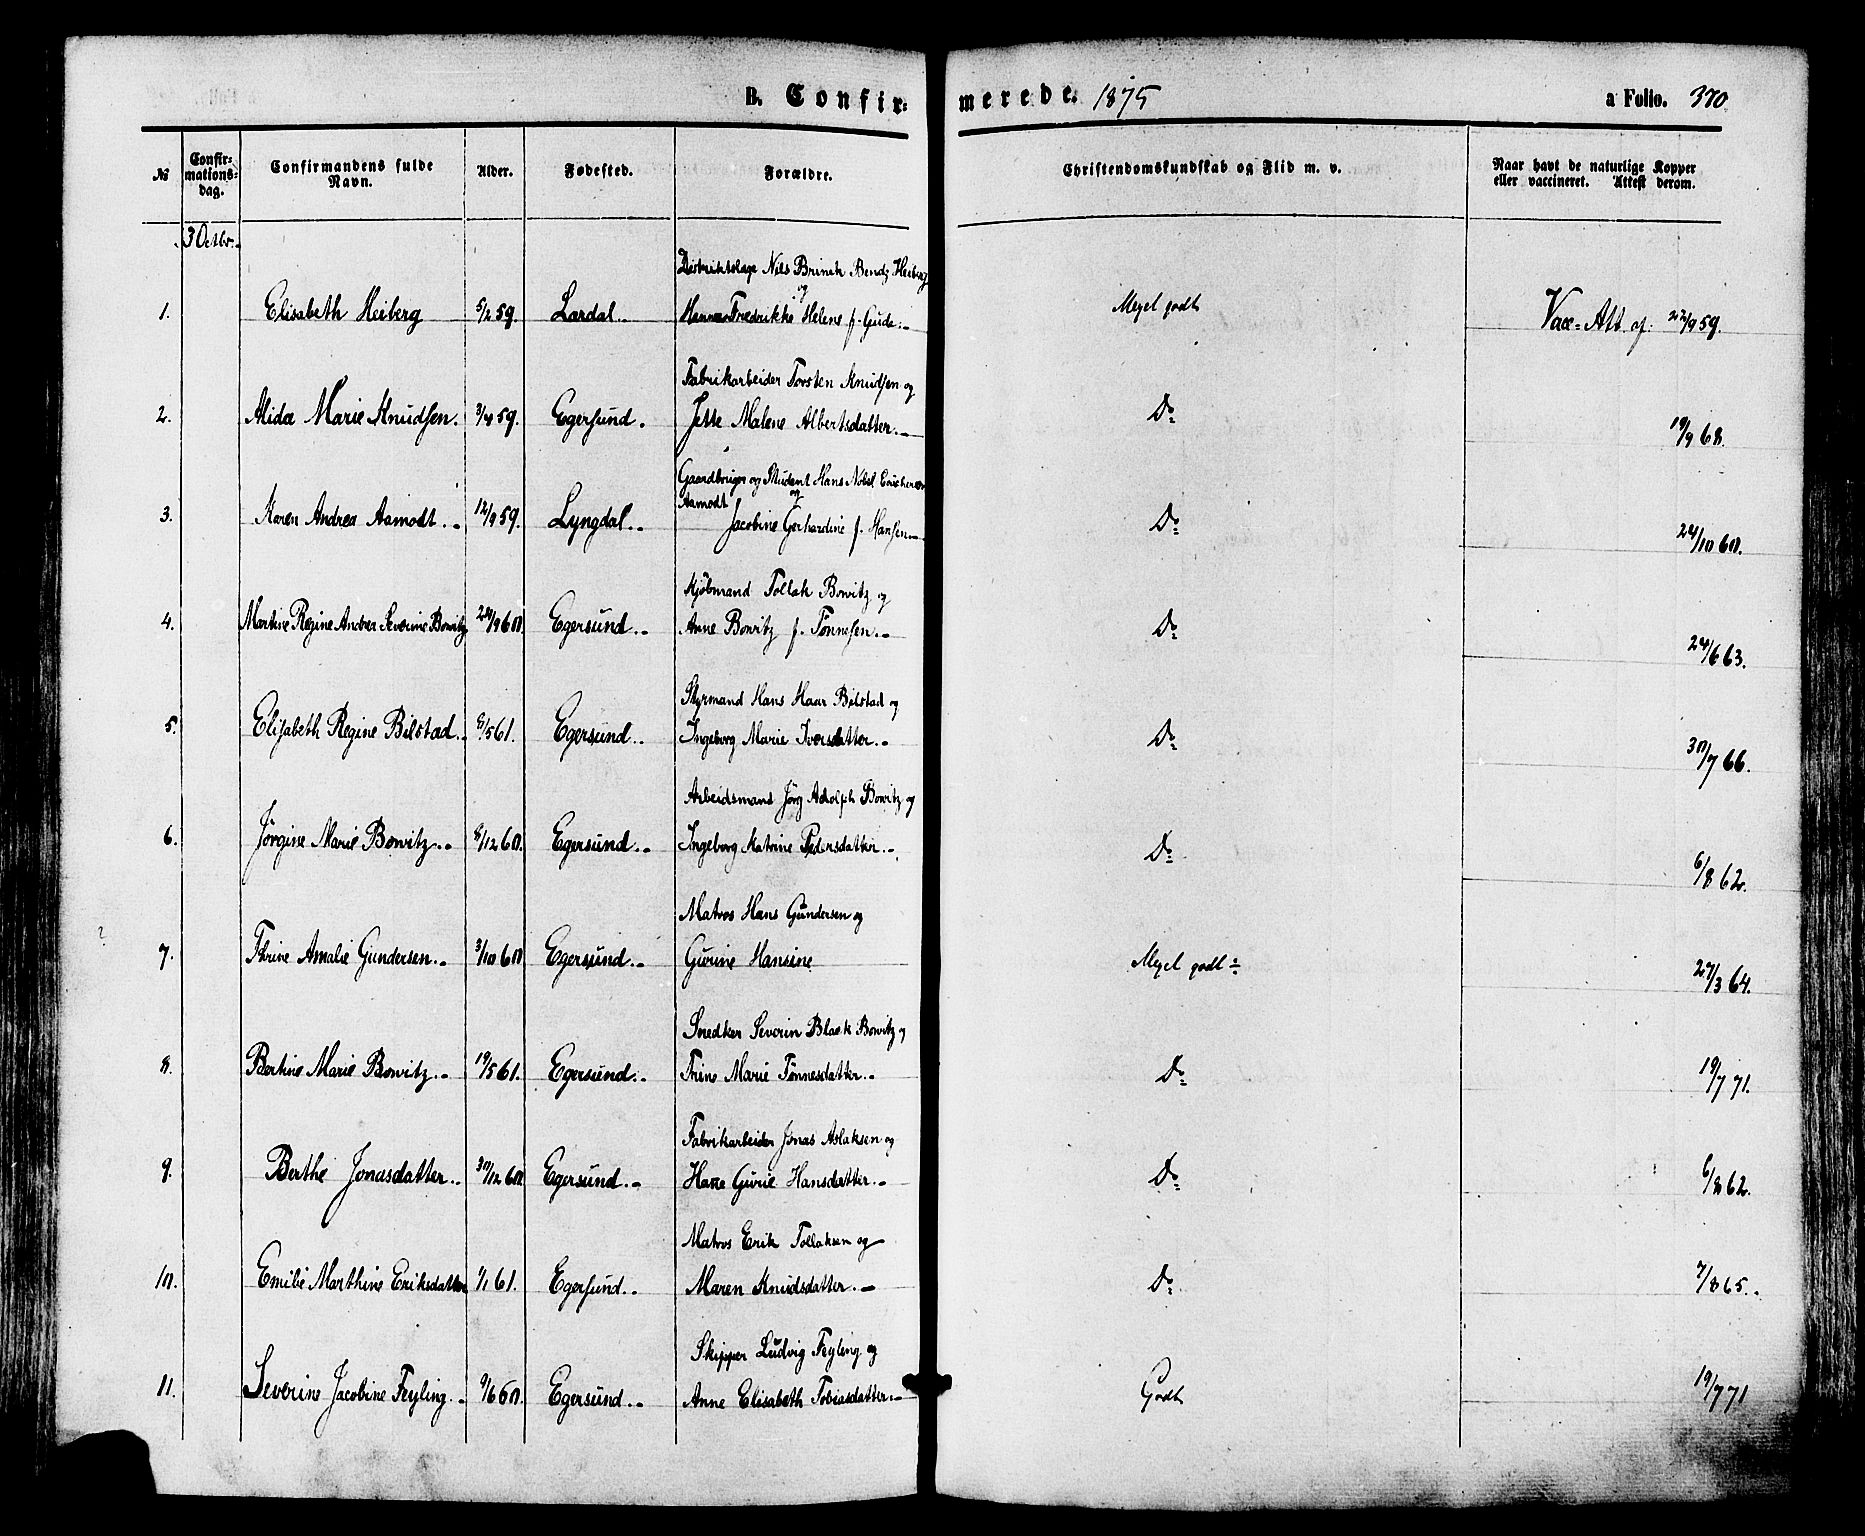 B. Confir: merede. 1875 a Folio. 370.
№ Confir=mations=dag. Confirmandens fulde Navn. Alder. Fødested. Forældre. Christendomskundskab og Flid m. v. Naar havt de naturlige Kopper eller vaccineret. Attest derom.
3 Octbr.
Distriktslæge Nils Brinck Bendz Heiberg og
1. Elisabeth Heiberg 5/2 59. Lardal. Fredrikke Helene f. Gude. Meget godt Vacc= Att. af 22/9 59.
Fabrikarbeider Torsten Knudsen og
2. Alida Marie Knudsen. 3/4 59. Egersund. Jette Malene Albertsdatter. Do 19/9 68.
Gaardbruger og Student Hans Nobel
Aamodt og
3. Karen Andrea Aamodt. 12/9 59. Lyngdal. Jacobine Gerhardine f. Hansen Do 24/10 60.
Kjøbmand Tollak Bowitz og
4. Martine Regine Andrea Severine Bowitz 24/9 60. Egersund. Anne Bowitz f. Tønnesen. Do 24/6 63.
Styrmand Hans Haar Bilstad og
5. Elisabeth Regine Bilstad. 8/5 61. Egersund. Ingeborg Marie Iversdatter. Do 30/7 66.
Arbeidsmand Jørg Adolph Bowitz og
6. Jørgine Marie Bowitz. 8/12 60. Egersund. Ingeborg Katrine Pedersdatter. Do 6/8 62.
Matros Hans Gundersen og
7. Thrine Amalie Gundersen. 3/10 60 Egersund. Gurine Hansine Meget godt ÷ 27/3 64.
Snedker Severin Blaek Bowitz og
8. Bertine Marie Bowitz. 19/5 61. Egersund. Trine Marie Tønnesdatter. Do 19/7 71.
Fabrikarbeider Jonas Aslaksen og
9. Berthe Jonasdatter. 30/12 60 Egersund. Hane Gurie Hansdatter. Do 6/8 62.
Matros Erik Tollaksen og
10. Emilie Marthine Eriksdatter 1/1 61. Egersund. Maren Knudsdatter. Do 7/8 65.
Skipper Ludvig Feyling og
11. Severine Jacobine Feyling. 9/6 60. Egersund. Anne Elisabeth Tobiasdatter. Godt 19/7 71